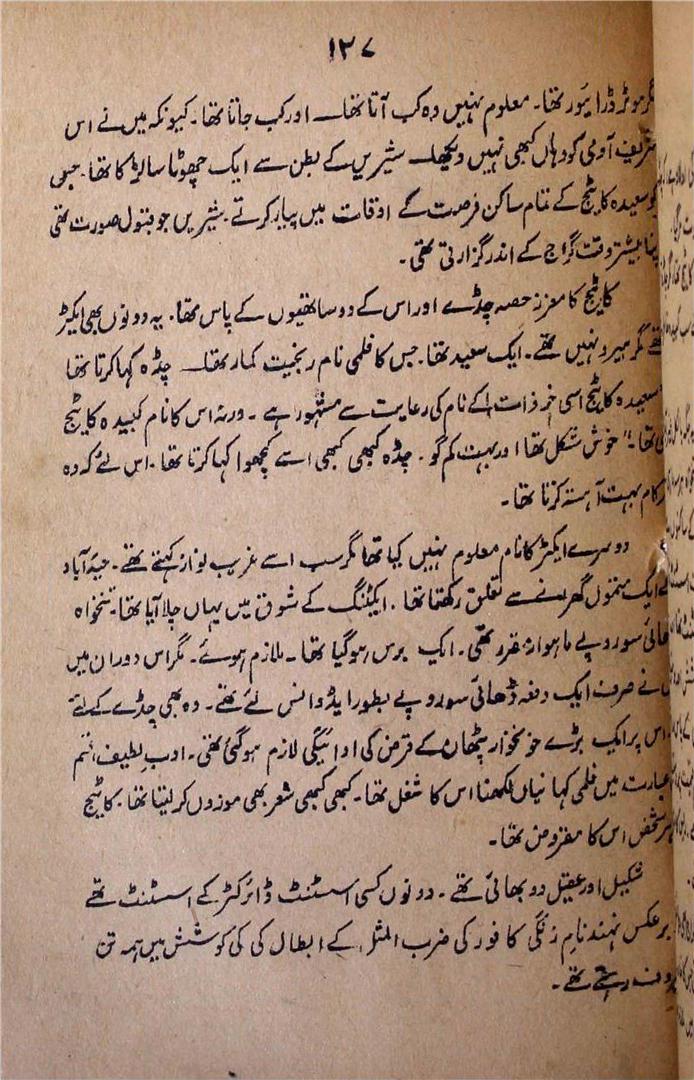 ۱۲۷
موٹر ڈرایئور تھا۔ معلوم نہیں وہ کب آتا تھا۔ اور کب جاتا تھا۔ کیونکہ میں نے اس
شریف آدمی کو وہاں کبھی نہیں دیکھا۔ شیریں کے بطن سے ایک چھوٹا سا لڑکا تھا۔ جس
کو سعیدہ کاٹیج کے تمام ساکن فرصت کے اوقات میں پیار کرتے۔ شیریں جو قبول صورت تھی
اپنا بیشتر وقت گراج کے اندر گزارتی تھی۔
کاٹیج کا معزز حصہ چڈے اور اس کے دو ساتھیوں کے پاس تھا۔ یہ دونوں بھی ایکٹر
تھے مگر ہیرو نہیں تھے۔ ایک سعید تھا۔ جس کا فلمی نام رنجیت کمار تھا۔ چڈہ کہا کرتا تھا
"سعیدہ کاٹیج اسی خر ذات کے نام کی رعایت سے مشہور ہے۔ ورنہ اس کا نام کبیدہ کاٹیج
ہی تھا۔" خوش شکل تھا اور بہت کم گو۔ چڈہ کبھی کبھی اسے کچھوا کہا کرتا تھا۔ اس لئے کہ وہ
ہر کام بہت آہستہ کرتا تھا۔
دوسرے ایکٹر کا نام معلوم نہیں کیا تھا مگر سب اسے غریب نواز کہتے تھے۔ حیدر آباد
کے ایک متمول گھرانے سے تعلق رکھتا تھا۔ ایکٹنگ کے شوق میں یہاں چلا آیا تھا۔ تنخواہ
ڈھائی سو روپے ماہوار مقرر تھی۔ ایک برس ہو گیا تھا۔ ملازم ہوئے۔ مگر اس دوران میں
اس نے صرف ایک دفعہ ڈھائی سو روپے بطور ایڈوانس لئے تھے۔ وہ بھی چڈے کے لئے
اس پر ایک بڑے خونخوار پٹھان کے قرض کی ادائیگی لازم ہو گئی تھی۔ ادب لطیف قسم
عبارت میں فلمی کہانیاں لکھنا اس کا شغل تھا۔ کبھی کبھی شعر بھی موزوں کر لیتا تھا۔ کاٹیج
ہر شخص اس کا مقروض تھا۔
شکیل اور عقیل دو بھائی تھے۔ دونوں کسی اسسٹنٹ ڈائرکٹر کے اسسٹنٹ تھے
برعکس نہند نام زنگی کافور کی ضرب المثل کے ابطال کی کی کوشش میں ہمہ تن
رہتے تھے۔